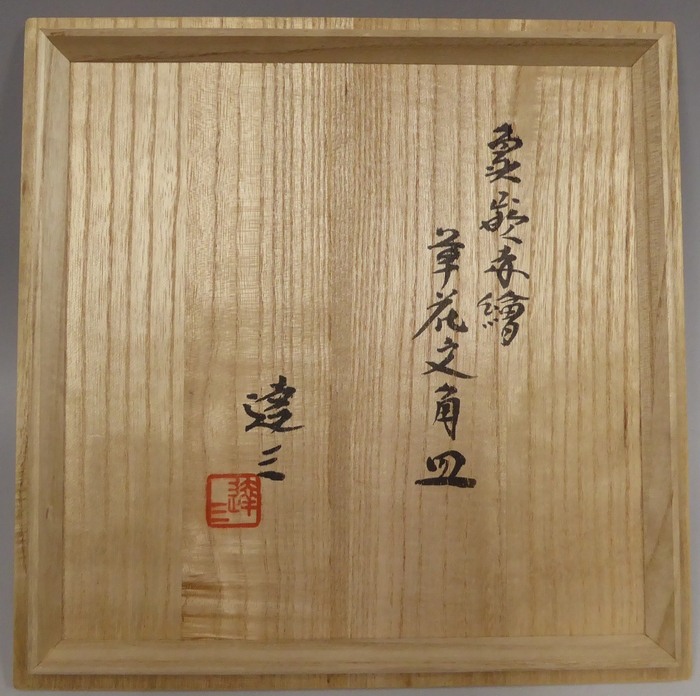 象嵌赤繪
草花文角皿
達三
達三